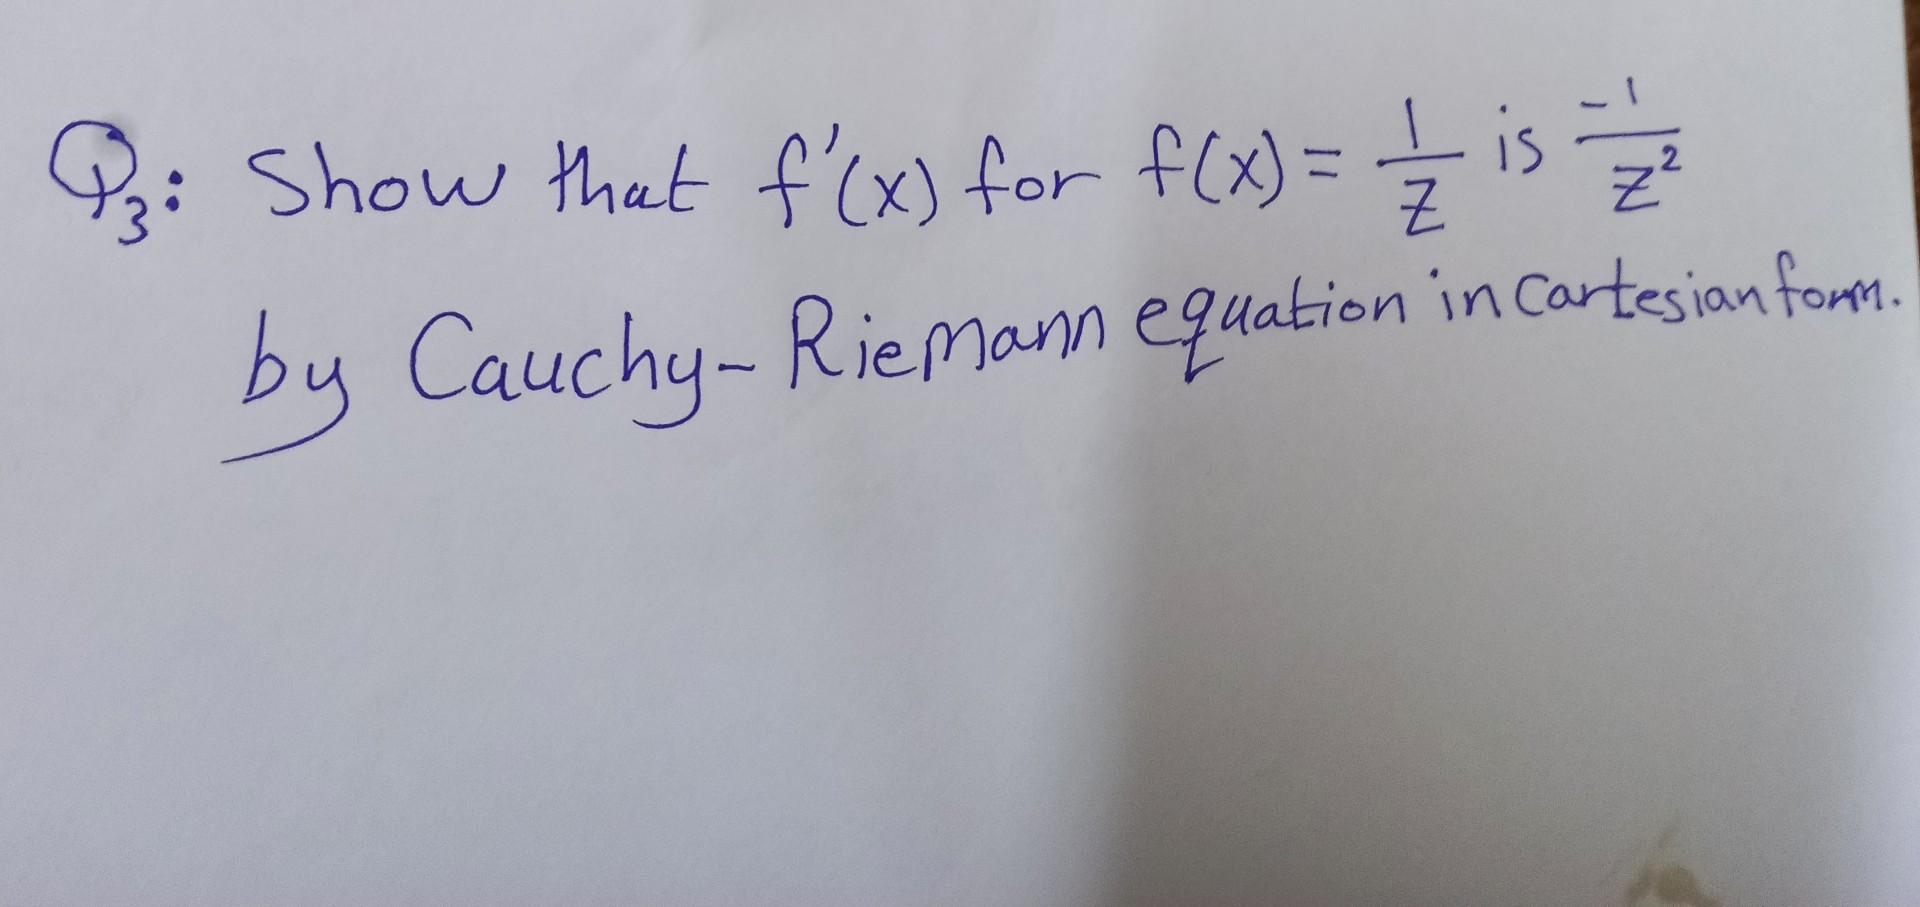 Q3: Show that f'(x) for f(x) = 1/z is -1/z²
by Cauchy-Riemann equation in Cartesian form.